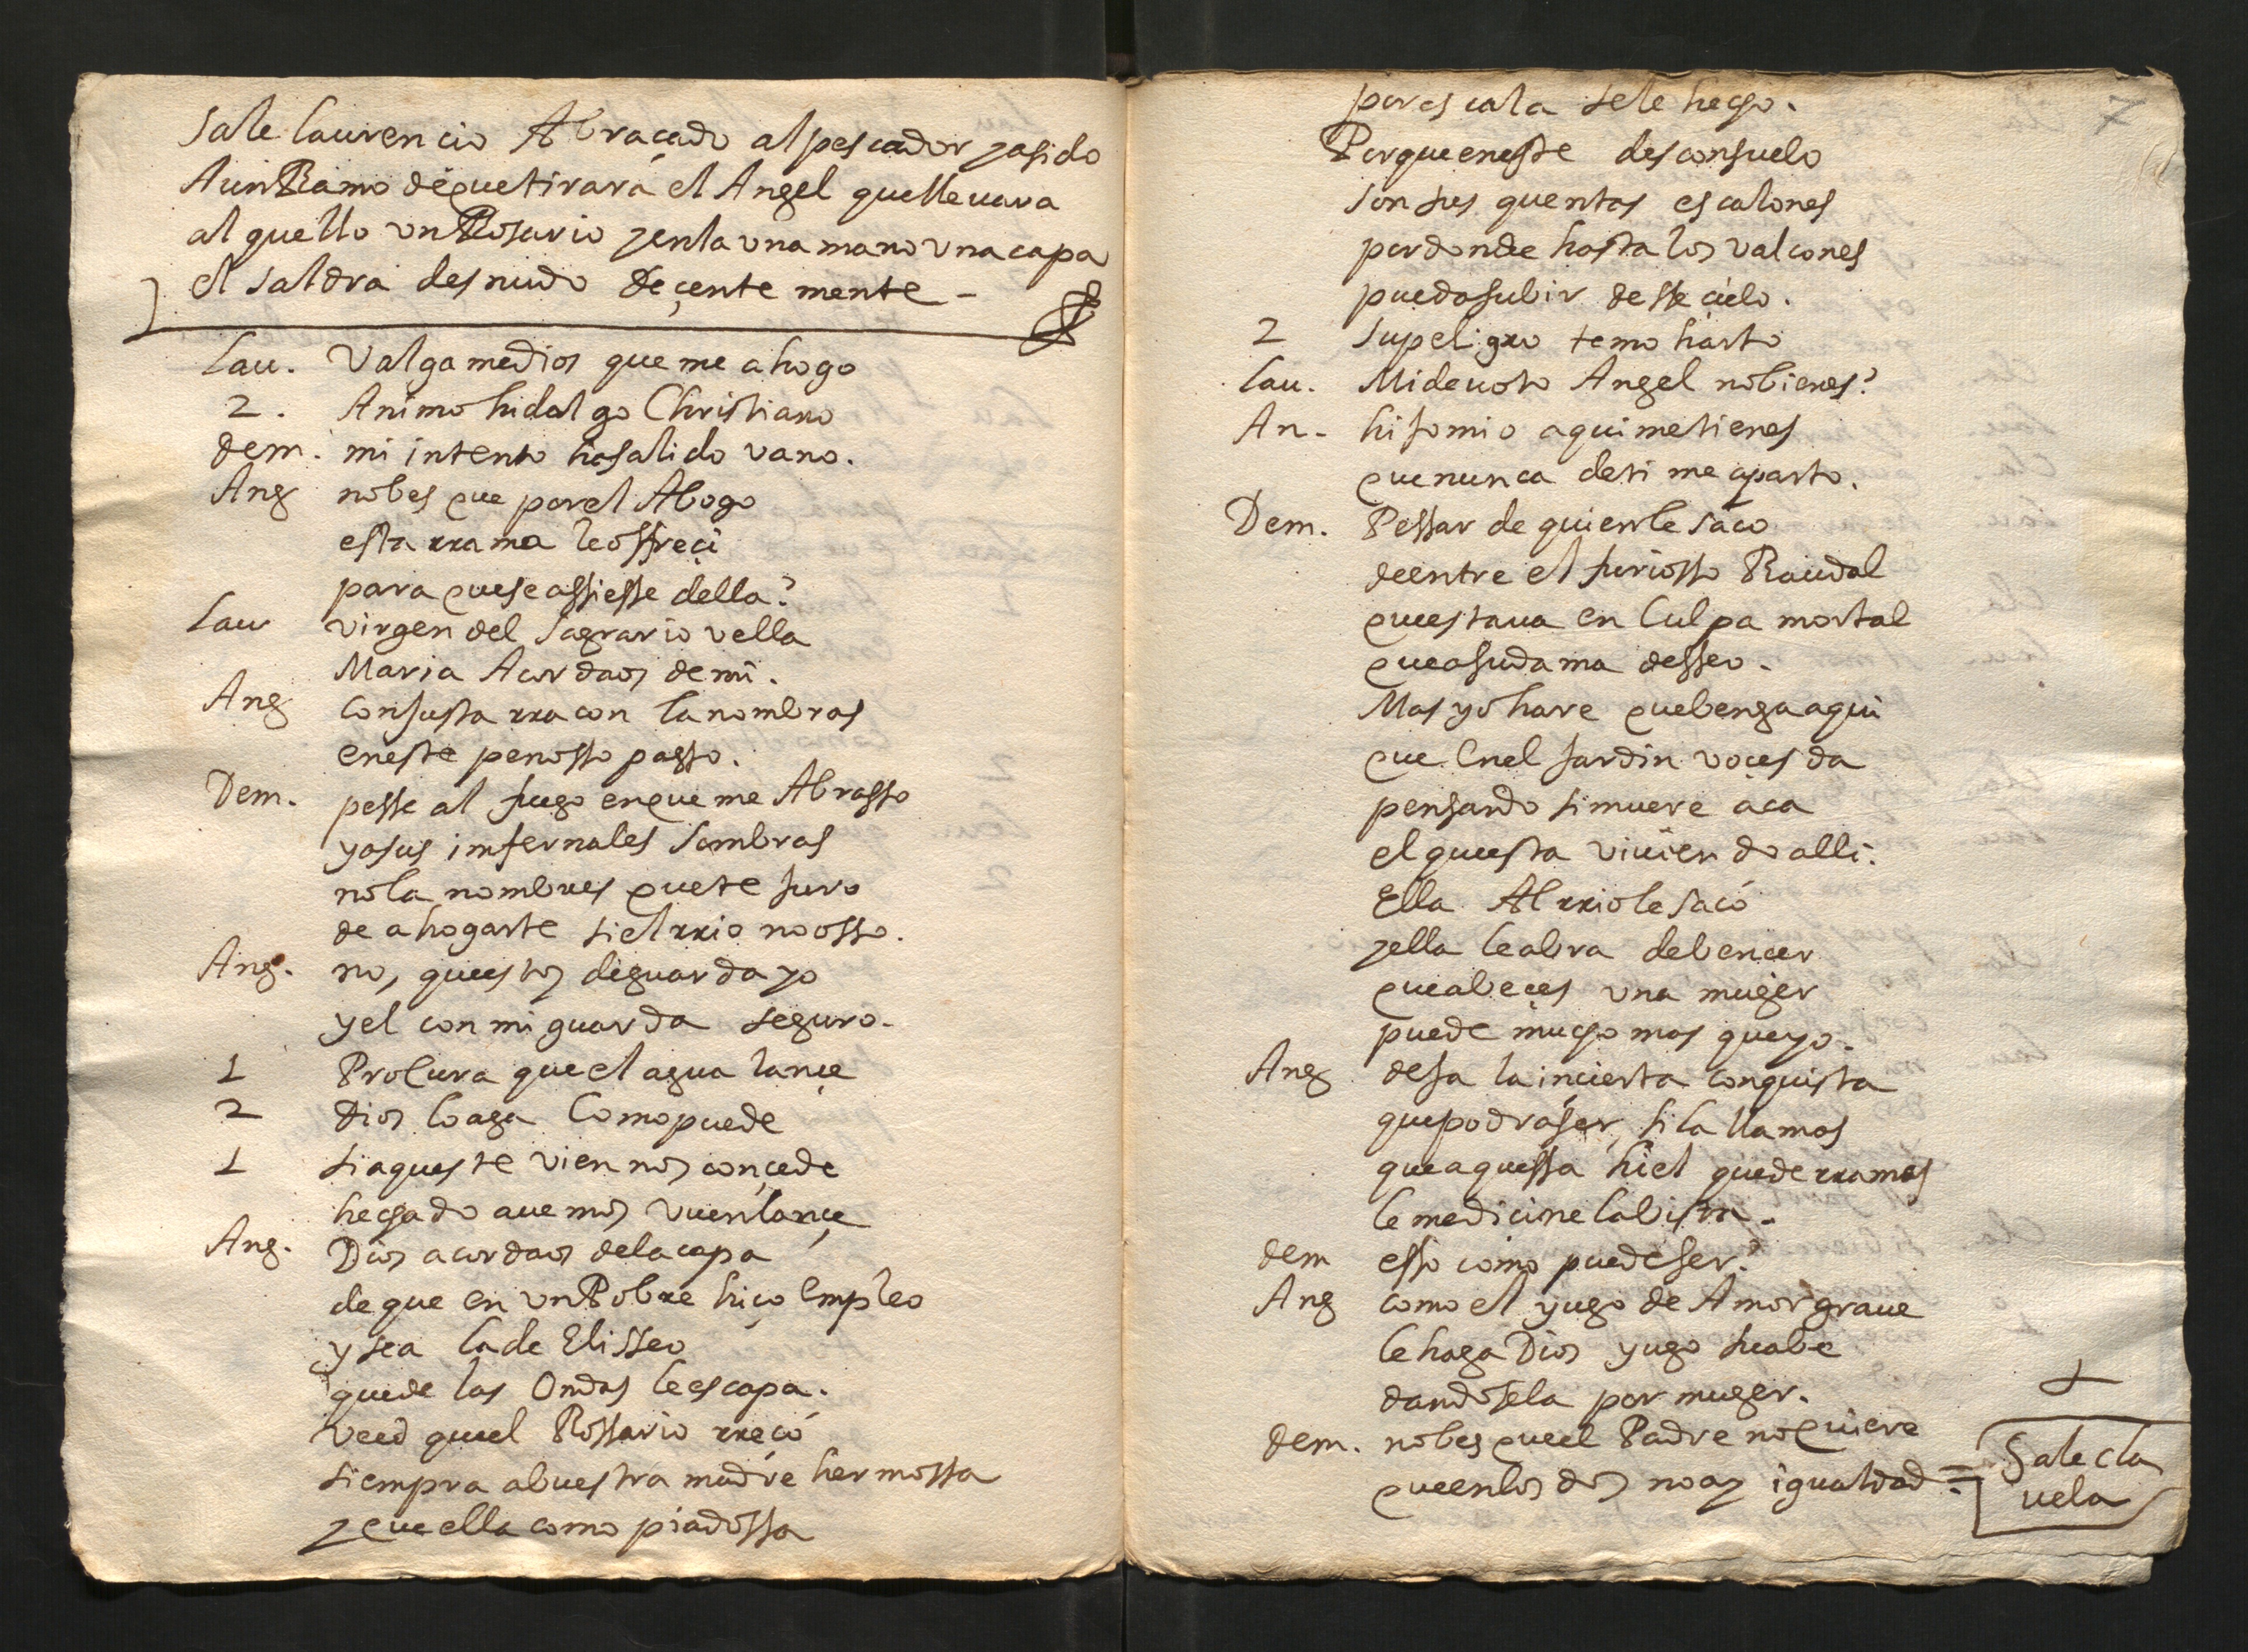 Sale laurencio Abraçado al pescador yasido
AunRamo dequetirará el Angel quellevara
al quello unRosario yenla una mano una capa
el saldra desnudo deçente mente -
Lau. Valgamedios que me ahogo
2. Animo hidalgo Christiano
dem. mi intento hasalido vano.
Ang nobes que porel Abogo
esta rrama leoffreci
para quese assiesse della?
Lau virgen del Sagrario vella
Maria Acordaos demi.
Ang Conjusta rracon lanombras
eneste penosso passo.
Dem. pesse al fuego enque me Abrasso
yasus imfernales sombras
nola nombres quete juro
de ahogarte siel rrio noosso.
Ang. no, questoy deguarda yo
yel con mi guarda seguro.
1 Procura queel agua lançe
2 Dios loaga Comopuede
1 siaqueste vien nos conçede
hecho do avemos vuenlançe
Ang. Dios acordaos delacapa
deque en unPobre hiço Empleo
ysea lade Elisseo
quede las Ondas leescapa.
veed queel Rossario rreçó
siempra abuestra madre hermossa
yqueella como piadossa
7
porescala sele hecho.
Porqueneste desconsuelo
son sus quentas escalones
pordonde hasta los valcones
puedasubir desse cielo.
2 supeligro temo harto
Lau. Midevoto Angel nobienes?
An. hijomio aquimetienes
quenunca deti me aparto.
Dem. Pessar de quienle saco
deentre el furiosso Raudal
questava en Culpa mortal
queasudama desseo.
Mas yohare quebengaaqui
que Enel Jardin voçes da
pensando simuere aca
el questa viviendo alli.
Ella Al rriole sacó
yella leabra debencer
queabeçes una muger
puede mucho mas queyo.
Ang deja laincierta conquista
quepodráser sila llamas
queaquessa hiel quederramas
le medicine labista.
dem esso como puedeser?
Ang como el yugo de Amor grave
lehaga Dios yugo suabe
dandosela por muger.
dem. nobes queel Padre noquiere
queenlos dos noay igualdad =
Sale cla
vela